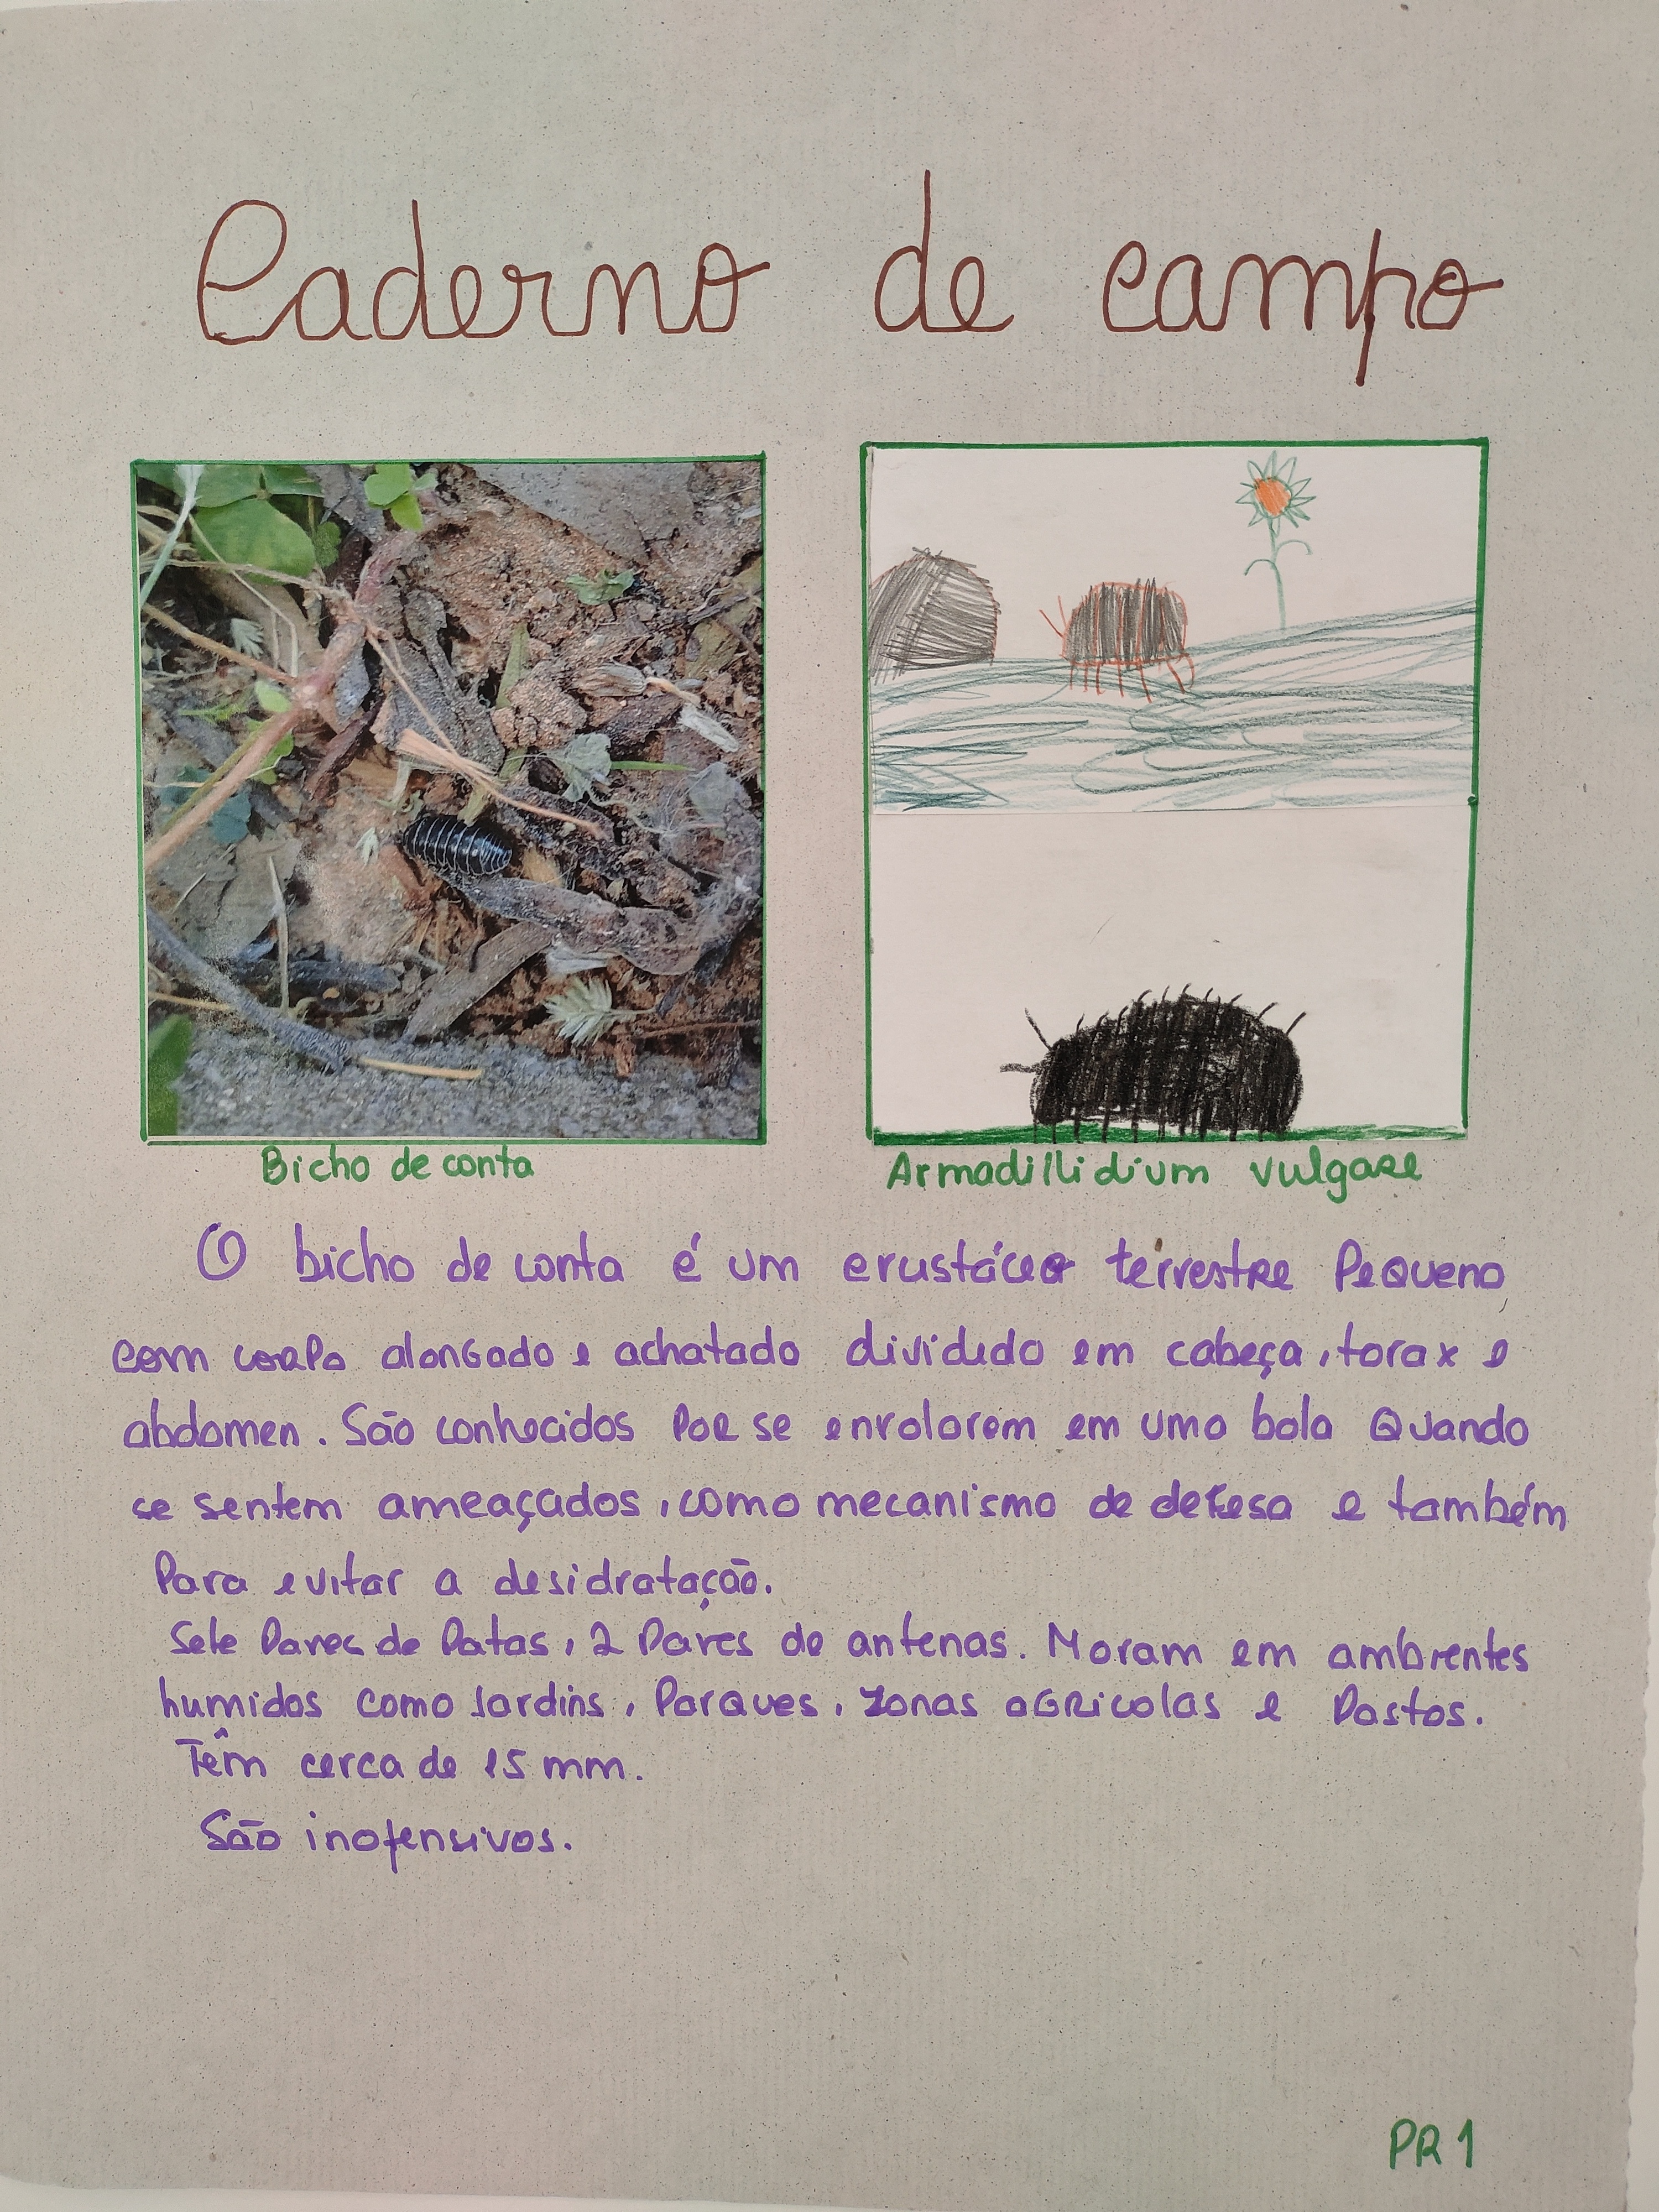 Caderno de campo
Bicho de conta
Armadillidium vulgare
O bicho de conta é um crustáceo terrestre Pequeno
com corpo alongado e achatado dividido em cabeça, torax e
abdomen. São conhecidos por se enrolarem em uma bola Quando
se sentem ameaçados, como mecanismo de defesa e também
Para evitar a desidratação.
Sete Pares de Patas, 2 Pares de antenas. Moram em ambientes
humidos como Jardins, Parques, zonas agricolas e Pastos.
Têm cerca de 15 mm.
São inofensivos.
PR 1